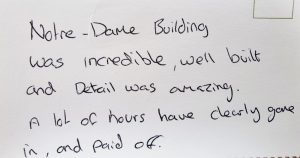 Notre-Dame Building
was incredible, well built
and Detail was amazing.
A lot of hours have clearly gone
in, and paid off.